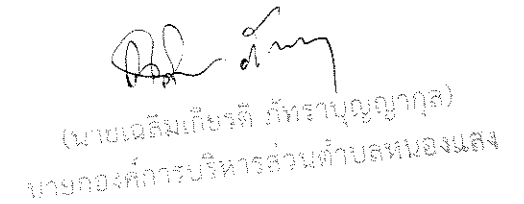 (นายเฉลิมเกียรติ ภัทราบุญญากุล)
นายกองค์การบริหารส่วนตำบลหนองแสง